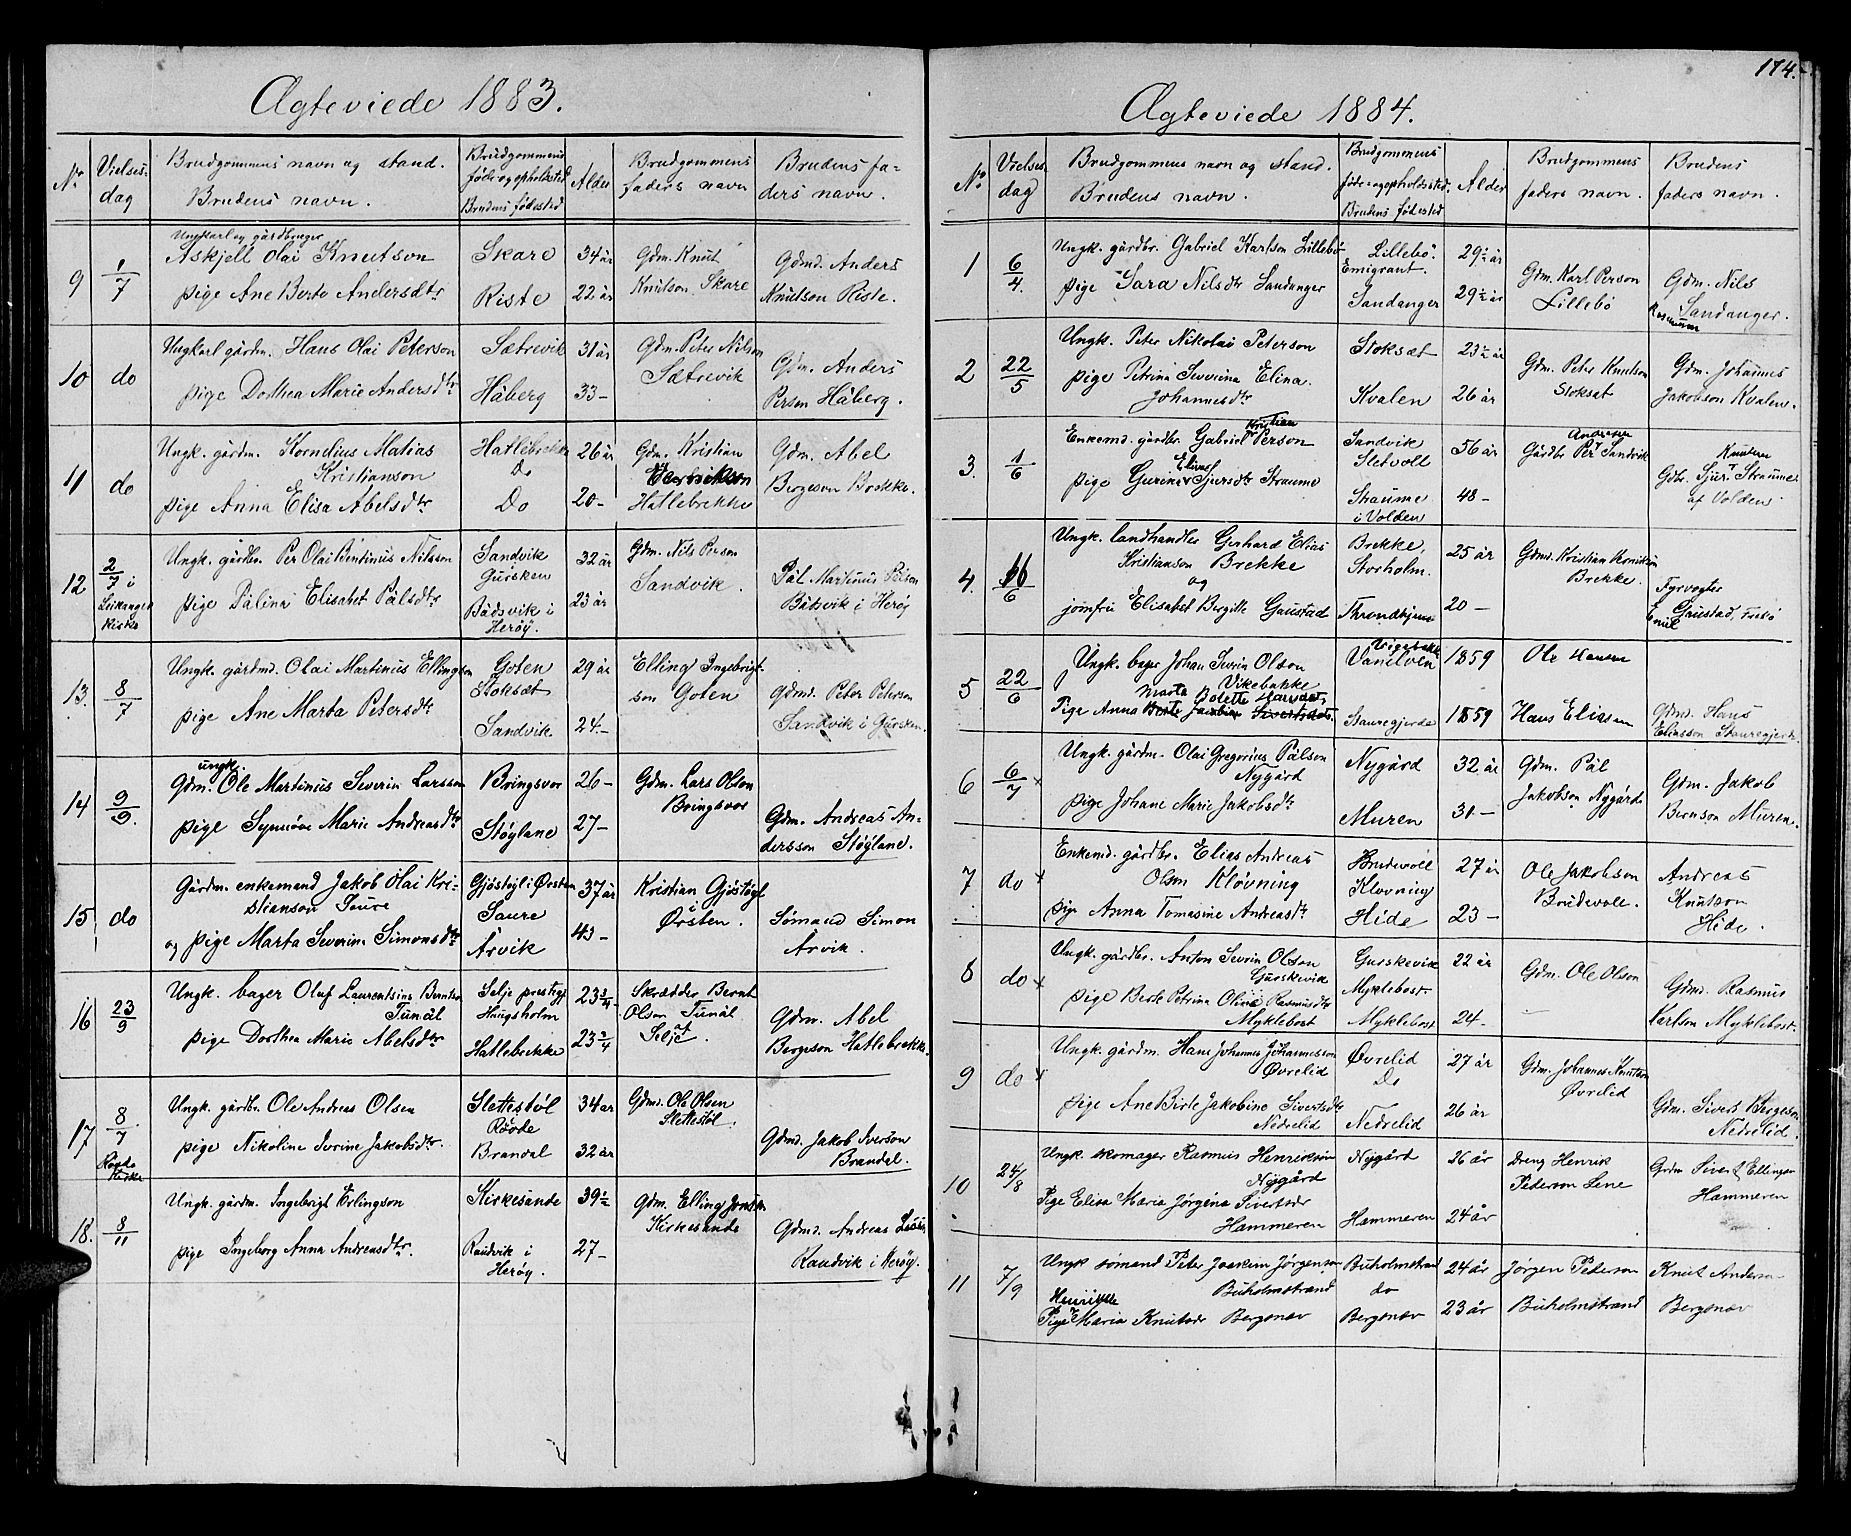 Ægteviede 1883.
No Vielses-dag Brudgommens navn og stand. Brudens navn. Brudgommens føde og opholdssted Brudens fødested Alder Brudgommens faders navn Brudens faders navn.
9 1/7 Ungkarl og gårdbruger Askjell Olai Knutson Skare 34 år Gdm. Knut Knutson Skare Gdmd. Anders Knutson Riste.
pige Ane Berte Andersdtr Riste 22 år
10 do Ungkarl gårdm. Hans Olai Peterson Sætrevik 31 år Gdm. Peter Nilson Sætrevik Gdm. Anders Person Håberg.
pige Dorthea Marie Andersdtr Håberg 33-
11 do Ungk. gårdm. Kornelius Matias Kristianson Hatlebrekke Do 26 år Gdm. Kristian Hatlebrekke Gdm. Abel Bergeson
pige Anna Elisa Abelsdtr Do 20-
12 2/7 i Leikanger kirke Ungk. gårdbr. Per Olai Bentinus Nilsson Sandvik Gursken 32 år Gdm. Nils Person Sandvik. Pål Martinus Pålson Bådsvik i Herøy
pige Pålina Elisabet Pålsdtr Bådsvik i Herøy. 23 år
13. 8/7 Ungk. gårdmd. Olai Martinus Ellingson Goten Stoksæt 29 år Elling Ingebrigtson Goten Gdmd. Peter Peterson Sandvik i Gursken.
pige Ane Marta Petersdtr Sandvik 24.-
14 9/9. ungk. Gdm. Ole Martinus Severin Larsson Bringsvor 26- Gdm. Lars Olson Bringsvor Gdm. Andreas Andersson Støyland.
pige Synnøve Marie Andreasdtr Støylane 27-
15 do Gårdm. enkemand Jakob Olai Kristianson Saure Gjøstøyl i Ørsten Saure 37 år Kristian Gjøstøyl i Ørsten. Sømand Simon Årvik.
og pige Marta Severine Simonsdtr Årvik 43-
16 23/9 Ungk. bager Oluf Laurentsius Berntson Tunål Selje prestegj Haugsholm 23 3/4 Skrædder Bernt Olson Tunål af Selje. Gdm. Abel Bergeson Hatlebrekke.
pige Dorthea Marie Abelsdtr Hatlebrekke 23 3/4
17 8/7 Røvde kirke Ungk. gårdbr. Ole Andreas Olsen Slettestøl Røvde 34 år Gdmd. Ole Olsen Slettestøl. Gdmd. Jakob Iverson Brandal.
pige Nikoline Ivrine Jakobsdtr. Brandal 32 år
18. 8/11 Ungk. gårdm. Ingebrigt Erlingson Kirkesande 39 1/2 Gdm. Elling Jonson Kirkesande Gdmd. Andreas Raudvik i Herøy.
pige Ingeborg Anna Andreasdtr. Raudvik i Herøy. 27-
174.
Ægteviede 1884.
No Vielses-dag Brudgommens navn og stand. Brudens navn. Brudgommens føde- og opholdssted. Brudens fødested Alder Brudgommens faders navn. Brudens faders navn.
1 6/4. Ungk. gårdbr. Gabriel Karlson Lillebø Lillebø. Emigrant. 29 1/2 år Gdm. Karl Person Lillebø Gdm. Nils Rasmusson Sandanger.
pige Sara Nilsdtr Sandanger Sandanger 29 1/2 år
2 22/5 Ungk. Peter Nikolai Peterson Stoksæt 23 1/2 år Gdm. Peter Knutson Stoksæt Gdm. Johannes Jakobson Kvalen.
pige Petrina Severina Elina Johannesdtr Kvalen 26 år
3. 1/6 Enkemd. gårdbr. Gabriel Kristian Person Sandvik Sletvoll 56 år Gårdbr Per Andersen Sandvik Gdbr. Sjur Knutsen Straume af Volden.
pige Gurine Elina Sjursdtr Straume Straume i Volden 48-
4. 16/6 Ungk. landhandler Gerhard Elias Kristianson Brekke Brekke, Storholm. 25 år Gdmd. Kristian Brekke. Fyrvogter Emil Gaustad,
og
jomfru Elisabet Bergitte Gaustad Throndhjem 20-
5 22/6 Ungk. bager Johan Sevrin Olson Vikebakke Vanelven 1859 Ole Hansen
Pige Anna Marta Bolette Hansdtr Stauregjerde 1859 Hans Eliassen Gdmd. Hans Eliasson Stauregjerde
6 6/7 x Ungk. gårdm. Olai Gregorius Pålson Nygård Nygård 32 år Gdm. Pål Jakobson Nygård Gdm. Jakob Bernson Muren.
pige Johane Marie Jakobsdtr Muren 31.-
7 do x Enkemd. gårdbr. Elias Andreas Olsen Kløvning Brudevoll Kløvning 27 år Ole Jakobson Brudevoll. Andreas Knutson Hide.
pige Anna Tomasine Andreasdtr Hide 23-
8 do x Ungk. gårdbr. Anton Sevrin Olson Gurskevik Gurskevik Myklebost 22 år Gdm. Ole Olson Gdmd. Rasmus Karlson Myklebost.
pige Berte Petrina Olina Rasmusdtr Myklebost Myklebost 24-
9 do x Ungk. gårdm. Hans Johannes Johannesson Øvrelid Øvrelid Do 27 år Gdm. Johannes Knutson Øvrelid Gdm. Sivert Bergeson Nedrelid.
pige Ane Birte Jakobine Sivertsdtr Nedrelid Nedrelid 26 år
10 24/8 Ungk. skomager Rasmus Henrikson Nygård Nygård 26 år Dreng Henrik Pederson Lene Grdm Sivert Ellingsen Hammeren
Pige Elisa Maria Jørgina Sivertsdr Hammeren Hammeren 24 år
11 7/9 Ungk sømand Peter Joakim Jørgenson Buholmstrand Buholmstrand do 24 år Jørgen Pederson Buholmstrand Knut Anderson Bergsnev
Pige Henrikke Maria Knutsdr Bergsnev Bergsnev 23 år